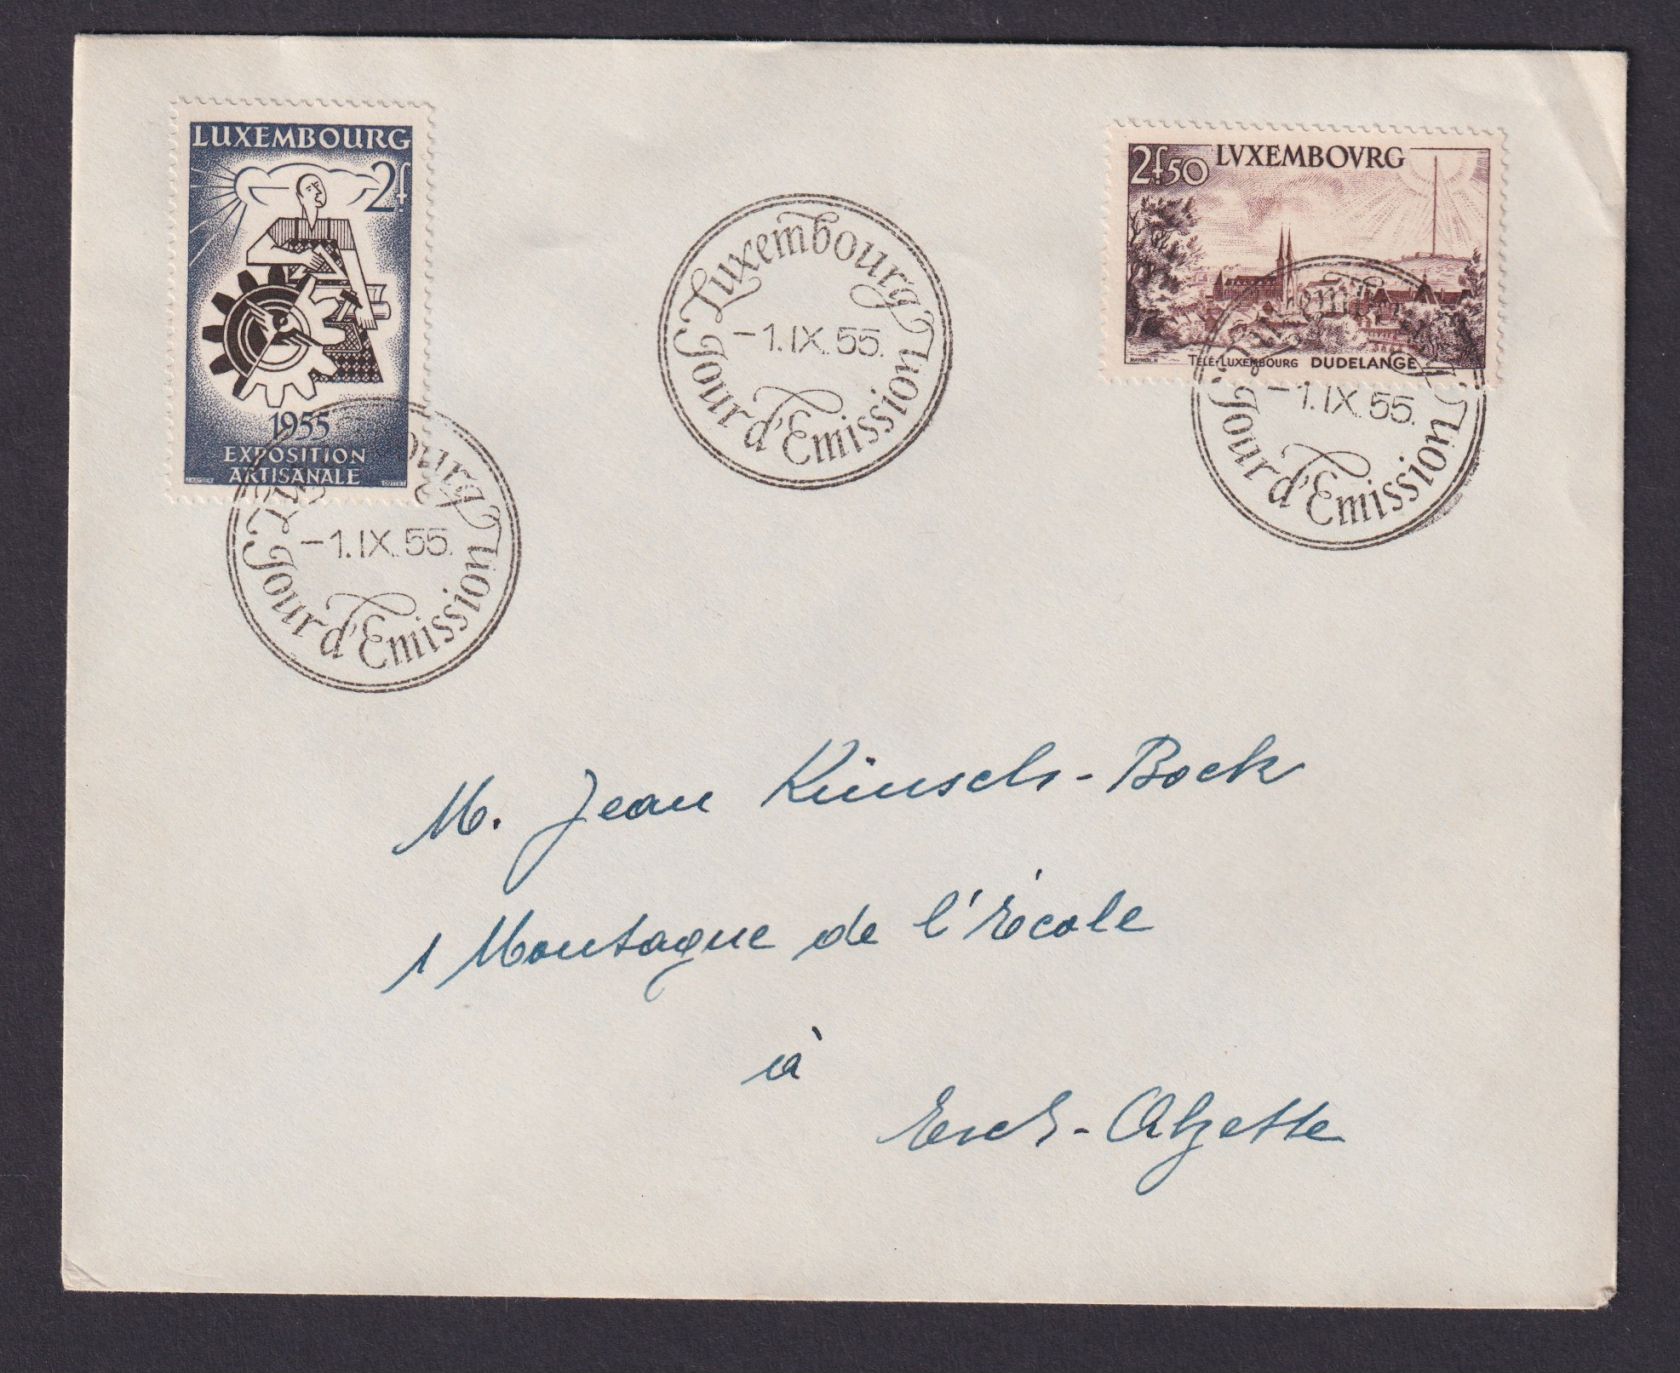 LUXEMBOURG
2f.
1955
EXPOSITION
ARTISANALE
Luxembourg
-1.IX.55.
Jour d'Emission
2f.50 LVXEMBOVRG
TÉLÉ-LUXEMBOURG DUDELANGE
Luxembourg
-1.IX.55.
Jour d'Emission
Luxembourg
-1.IX.55.
Jour d'Emission
M. Jean Künsch-Bock
1 Montagne de l'École
à
Esch-Alzette